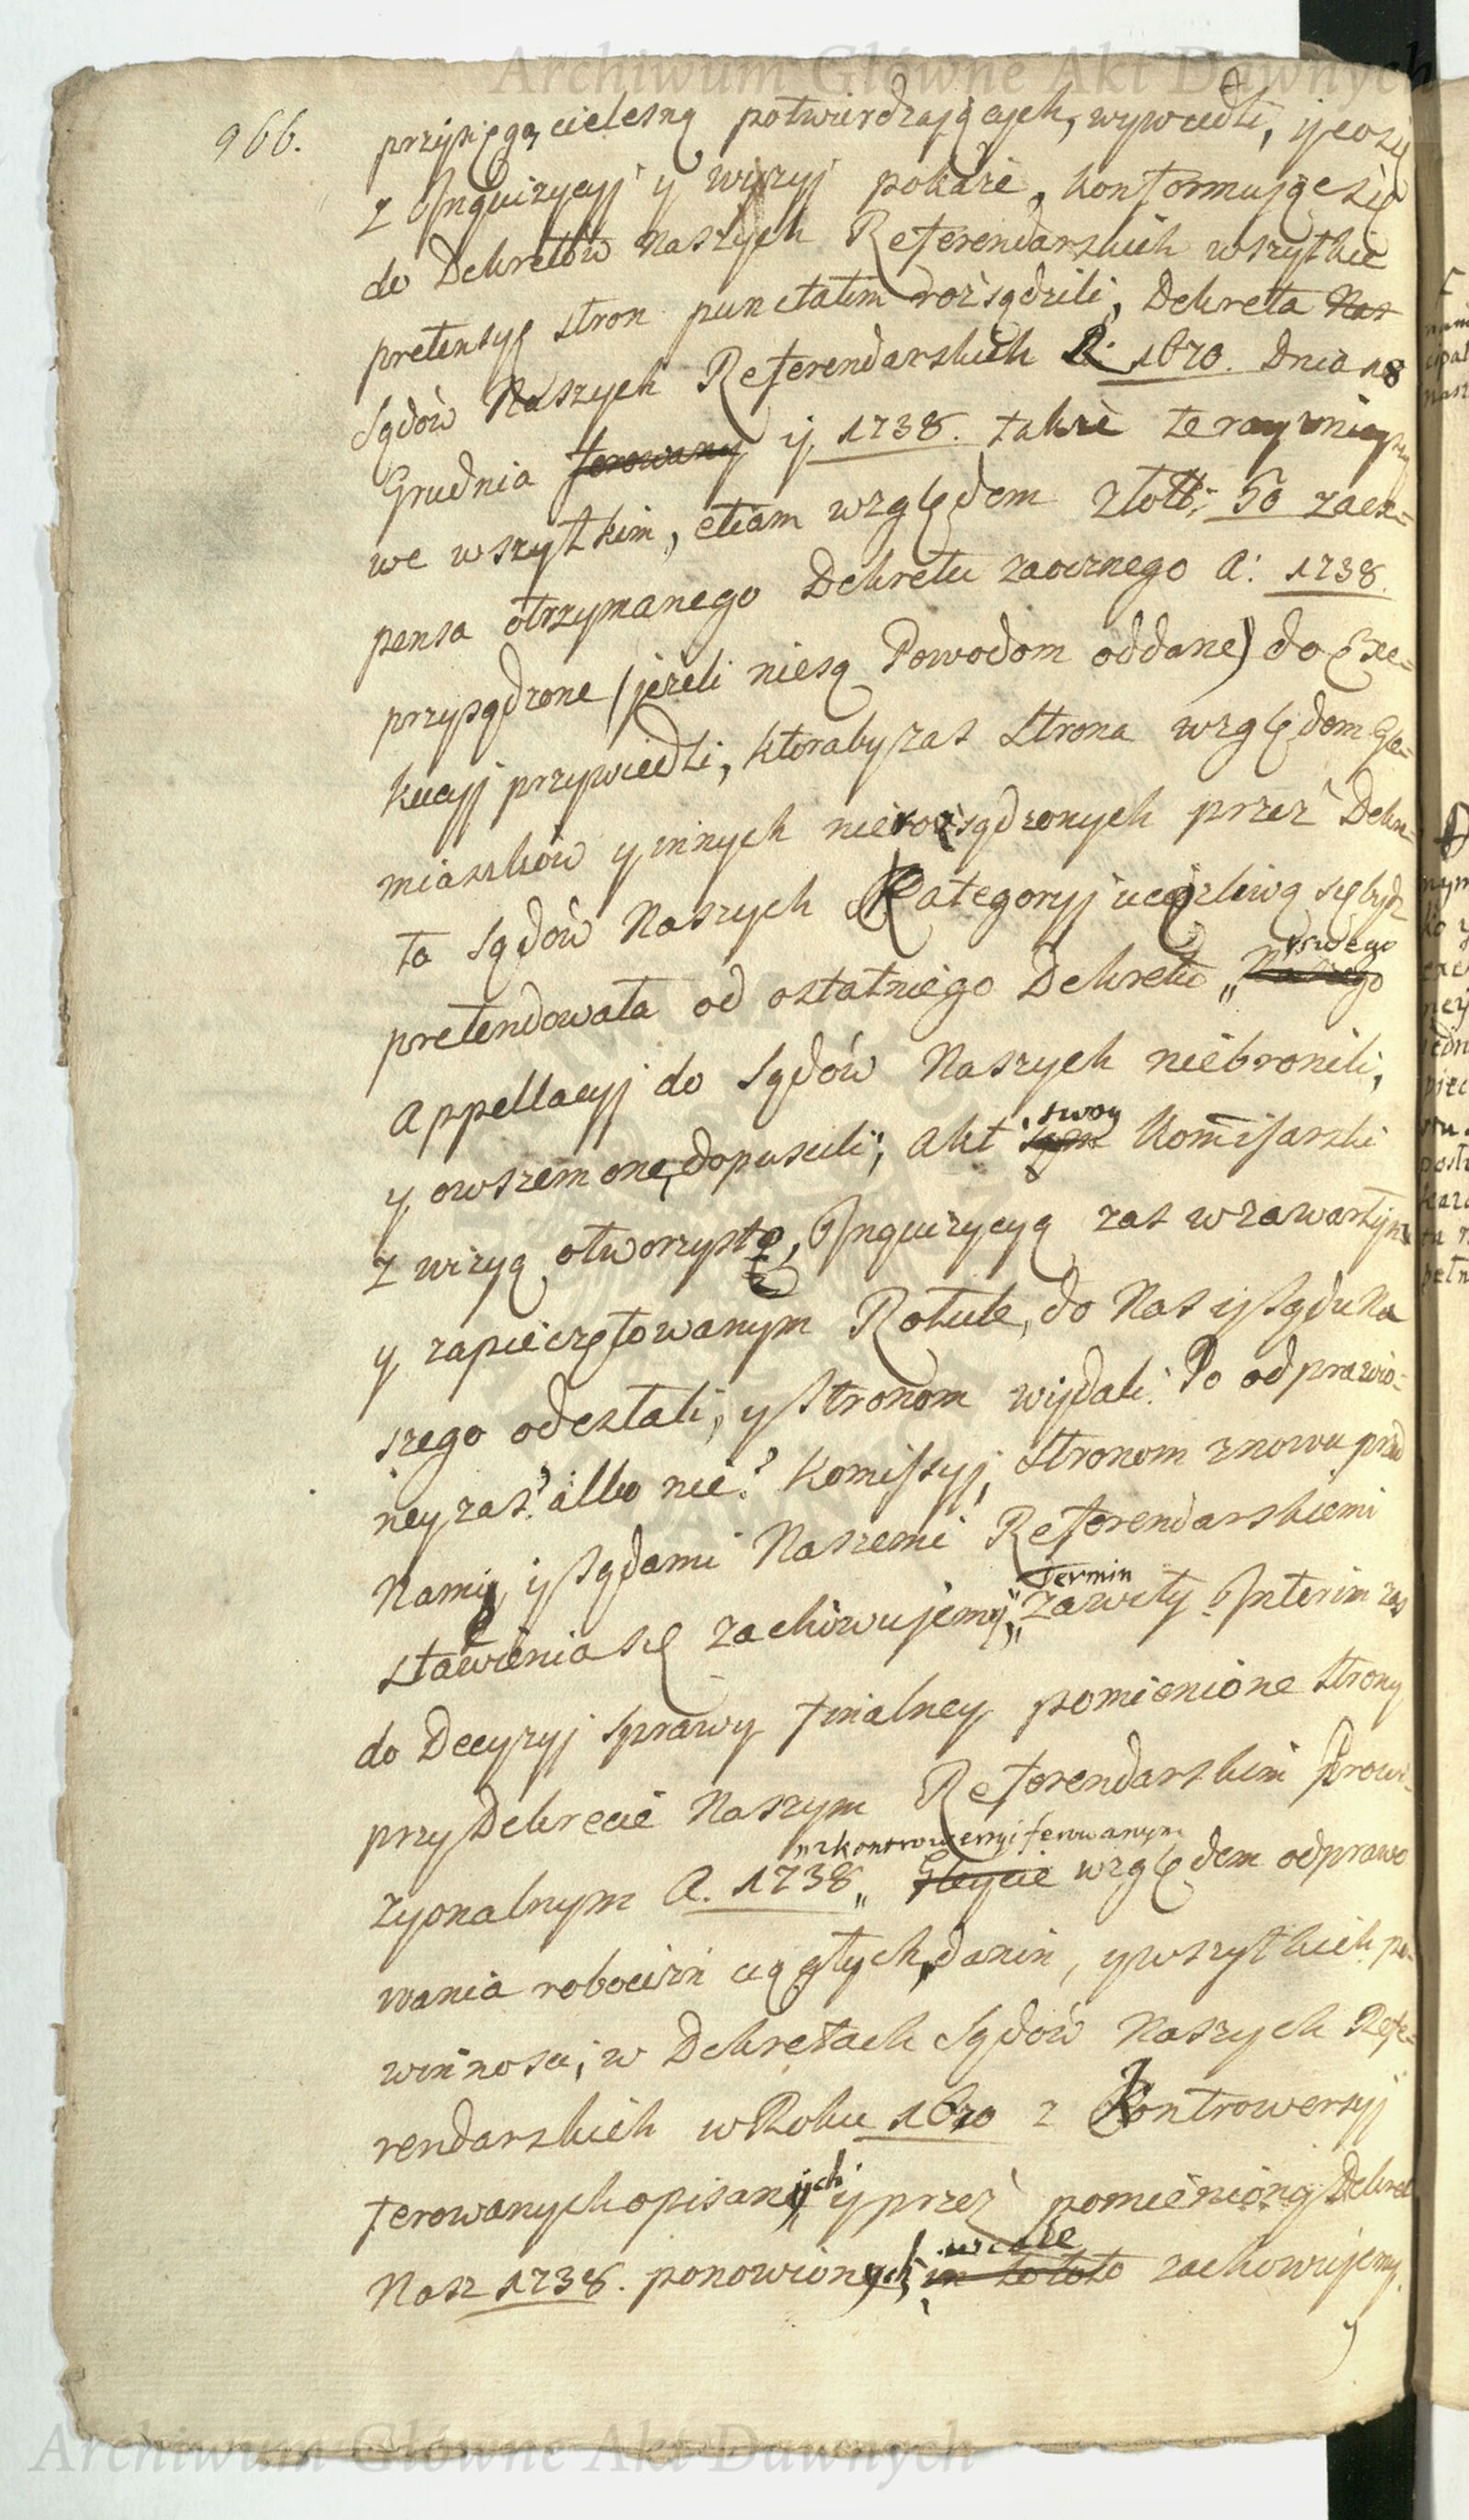 966.
przysięgą cielesną potwierdzających, wywiedli, y co się
z Inquizycyj y wizyj pokaże, konformując się
do Dekretów Naszych Referendarskich wszytkie
pretensye stron punctatim rozsądzili, Dekreta Nas
Sądów Naszych Referendarskich R: 1670. Dnia 18
Grudnia ferowany ÿ 1738. także teraznieyszy
we wszytkim, etiam względem Złott: 50 za ex=
pensa otrzymanego Dekretu zaocznego A: 1738.
przysądzone (jeżeli niesą Powodom oddane) do Exe=
kucyj przywiedli, ktoraby zas strona względem Ga=
miaszków y innych nierozsądzonych przez Dekre=
ta Sądów Naszych Kategoryj uciążliwą się bydz
pretendowała od ostatniego Dekretu „ Naszego swego
Appellacyj do Sądów Naszych niebronili,
y owszem one dopuscili; Akt swoy Komissarski
z wizyą otworzystą, Inquizycyą zas w zawartym
y zapieczętowanym Rotule, do Nas ÿ Sądu Na
szego odesłali, y Stronom wydali. Po odprawio=
ney zas? albo nie? Komissyj, Stronom znowu przed
Nami, ÿ Sądami Naszemi Referendarskiemi
stawienia się zachowujemy „ Termin zawity. Interim zas
do Decyzyj sprawy finalney pomienione Strony
przy Dekrecie Naszym Referendarskim Prowi=
zyonalnym A. 1738 „ „z kontrowersyi ferowanym względem odprawo
wania robocizn ciągłych, danin, y wszytkich po=
winnosci, w Dekretach Sądów Naszych Refe=
rendarskich w Roku 1670 z Kontrowersyj
ferowanych opisanych ÿ przez pomieniony Dekret
Nasz 1738. ponowionych, in toto wcale zachowujemy.
y